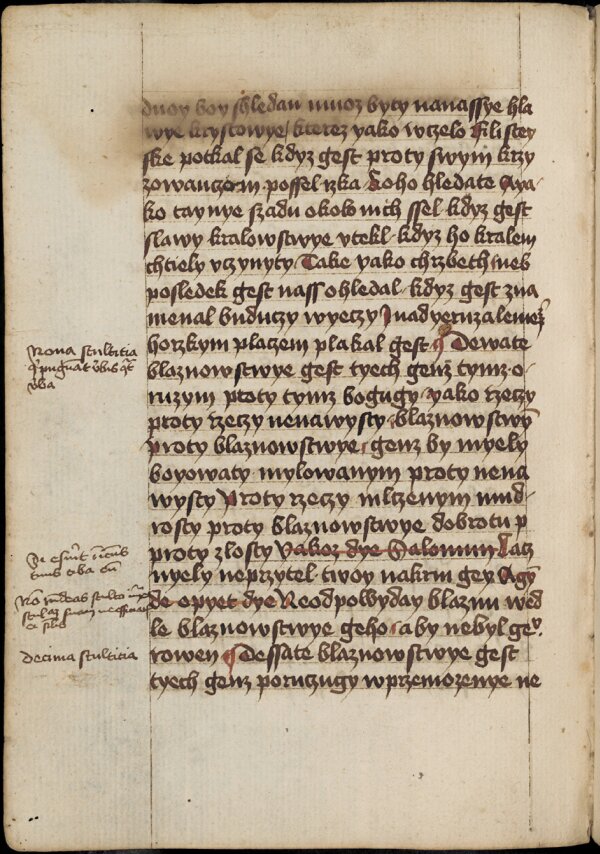 duoy boy shledan muoz byty nanassye hla
wye krystowye kterez yako wczelo filistey
ske potkal se kdyz gest proty swym krzy
zowanczom possel rzka Koho hledate Aya
ko taynye szadu okolo nich ssel kdyz gest
slawy kralowstwye vtekl kdyz ho kralem
chtiely vczynyty Take yako chrzbeth neb
posledek gest nass ohledal kdyz gest zna
menal buduczy wyeczy Nad yeruzalemem
horzkym placzem plakal gest ¶ Dewate
blaznowstwye gest tyech genz tymz o
ruzym proty tymz bogugy yako rzeczy
proty rzeczy nenawysty blaznowstwy
proty blaznowstwye genz by myely
boyowaty mylowanym proty nena
wysty Proty rzeczy mlczenym mud
rosty proty blaznowstwye dobrotu p
proty zlosty Yakoz dye Salomun Lacz
nyely neprzytel twoy nakrm gey Agy
de opyet dye Neodpowyday blaznu wed
le blaznowstwye geho aby nebyl geo
rowen ¶ Dessate blaznowstwye gest
tyech genz poruczugy wprzemozenye ne
Nona stultitia
decima stultitia